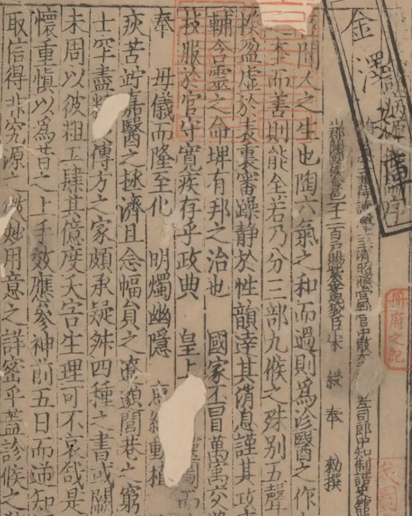 金澤文庫
左司郎中知制誥史館
郡開國侯食邑一千二百戶賜紫金魚袋臣宋 綬 奉 勑撰
聞人之生也陶六氣之和而過則爲疹醫之作
而善則能全若乃分三部九候之殊別五聲
揆盈虛於表裏審躁靜於性韻達其消息謹其攻
輔含靈之命埤有邦之治也 國家丕冒萬㝢交
技服於官守寬疾存乎政典 皇上 圖而
奉 母儀而隆至化 明燭幽隱 惠綏動植
疾苦竚嘉醫之拯濟且念幅員之遼邈閭巷之窮
士罕盡 傳方之家頗承疑舛四種之書或闕
未周以彼粗工肆其億度夭害生理可不哀哉是
懷重慎以爲昔之上手效應參神前五日而逆知
取信得非究源之 妙用意之詳密乎蓋診候之